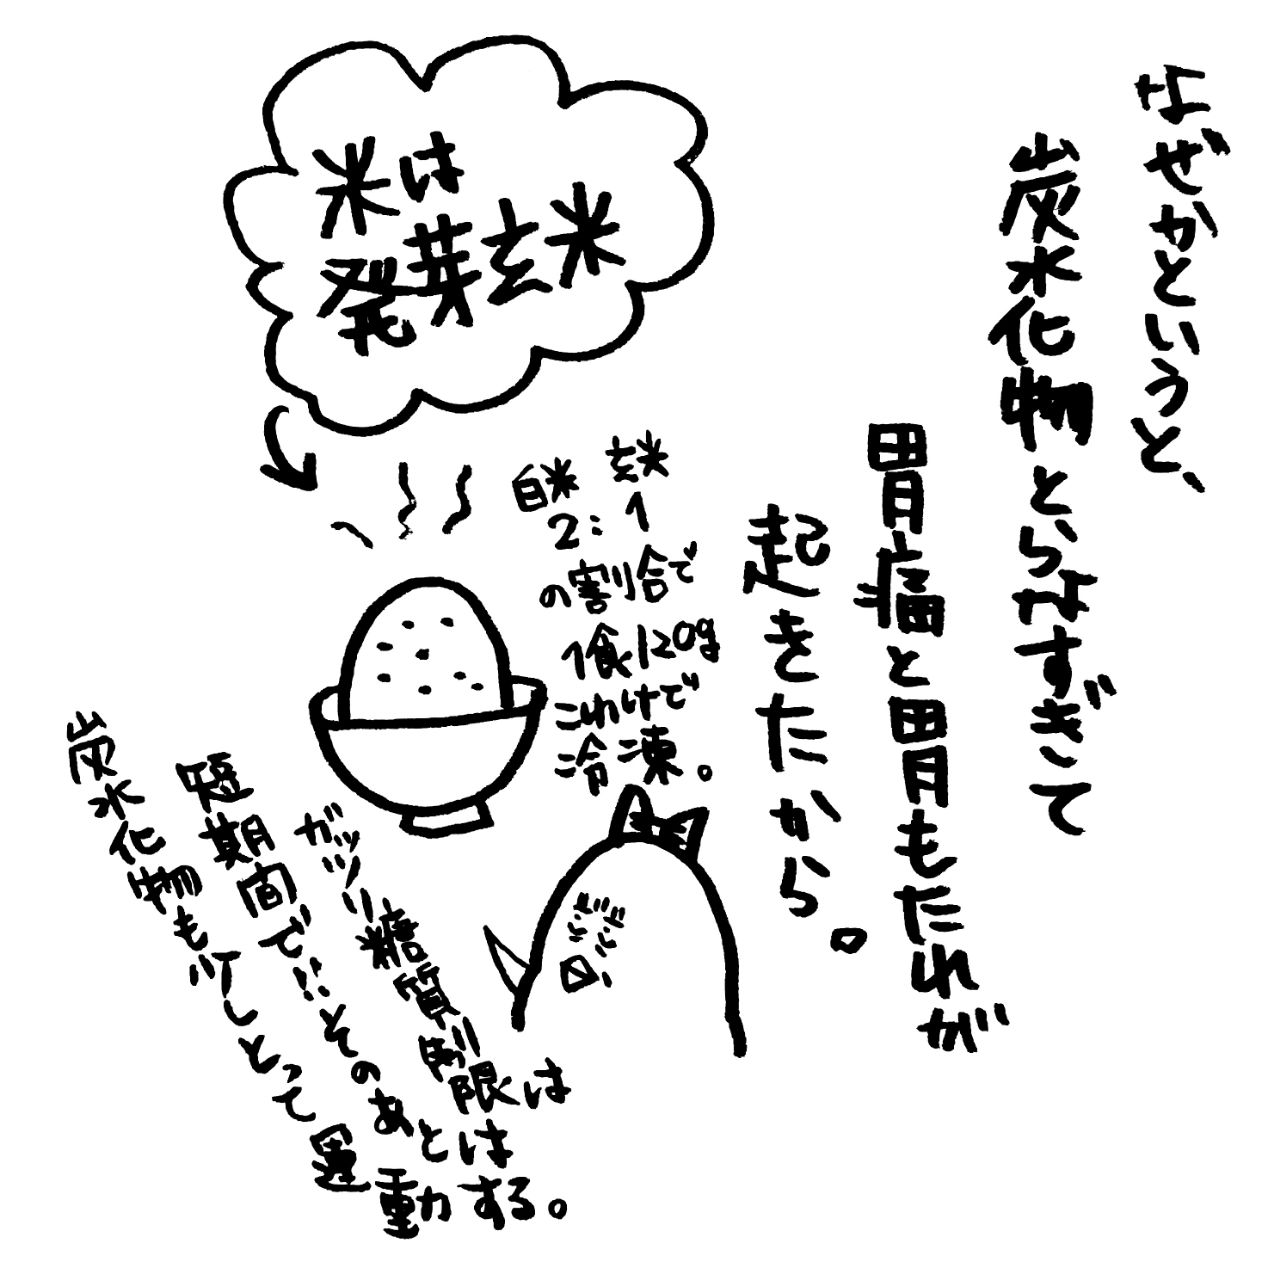 なぜかというと、
炭水化物とらなすぎて
胃痛と胃もたれが
起きたから。
米は
発芽玄米
白米 玄米
2:1
の割合で
1食120g
こわけで
冷凍。
ガッツリ糖質制限は
短期間でいいそのあとは
炭水化物も少しとって運動する。